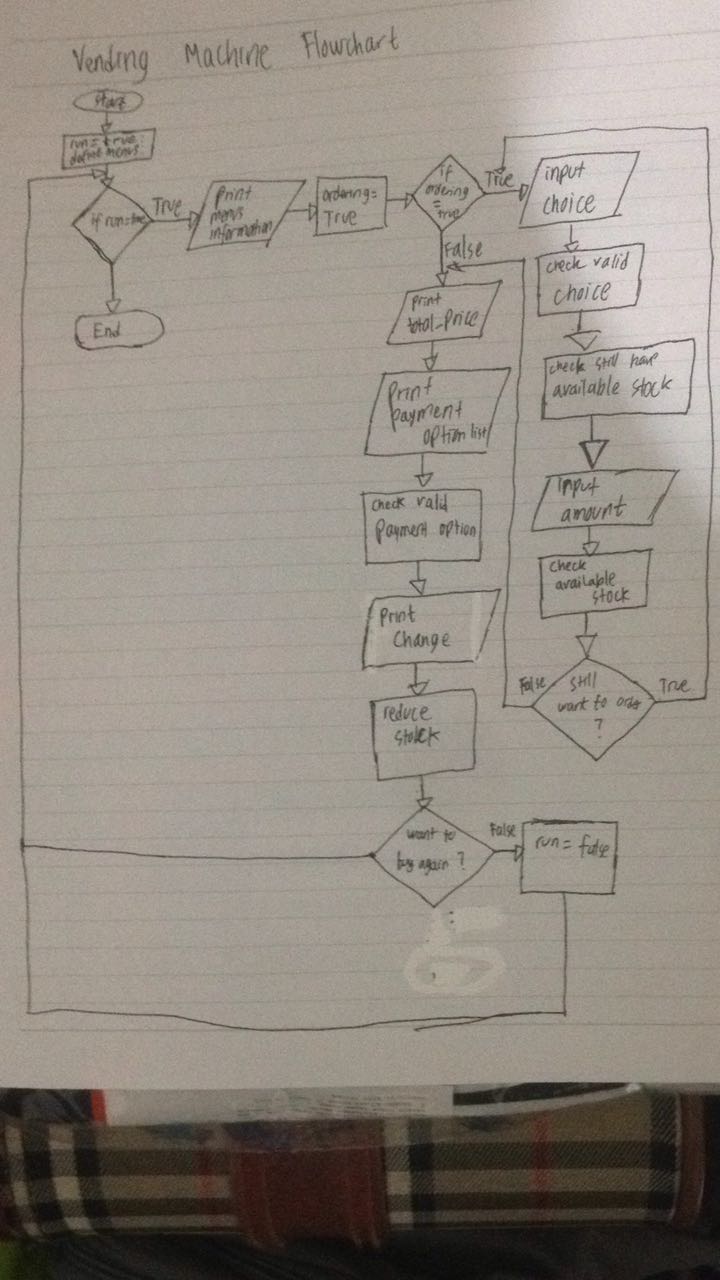 Vending Machine Flowchart
Start
run = true
define menus
if run=true
True
End
Print
menus
information
ordering =
True
if
ordering
=
true
True
False
input
choice
check valid
choice
check still have
available stock
input
amount
check
available
stock
still
want to order
?
False
True
Print
total_price
Print
payment
option list
check valid
payment option
Print
Change
reduce
stock
want to
buy again ?
False
run = false